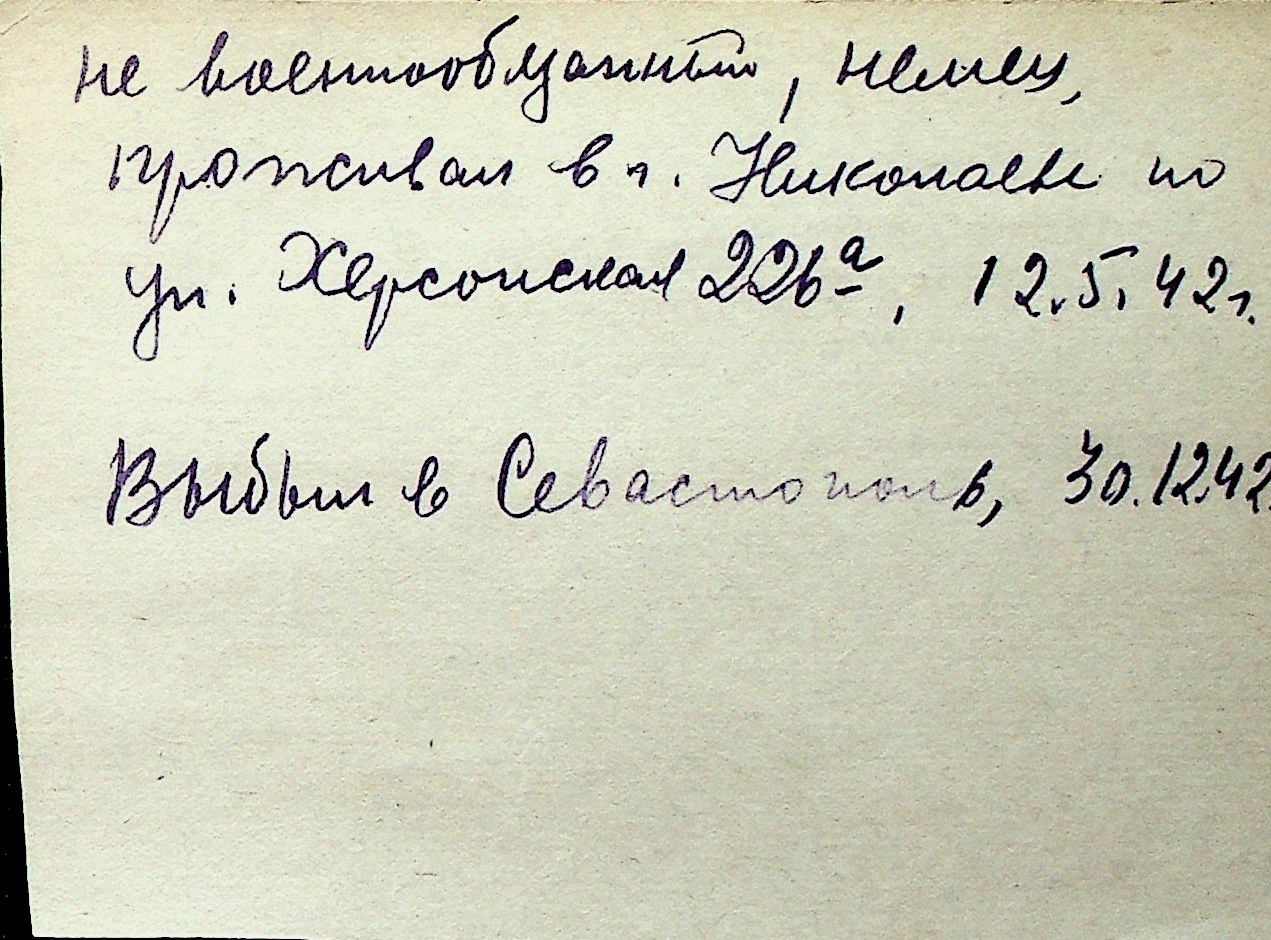 не военнообязанный, немец,
проживал в г. Николаеве по
ул. Херсонская 226а, 12.5.42г.
Выбыл в Севастополь, 30.12.42.